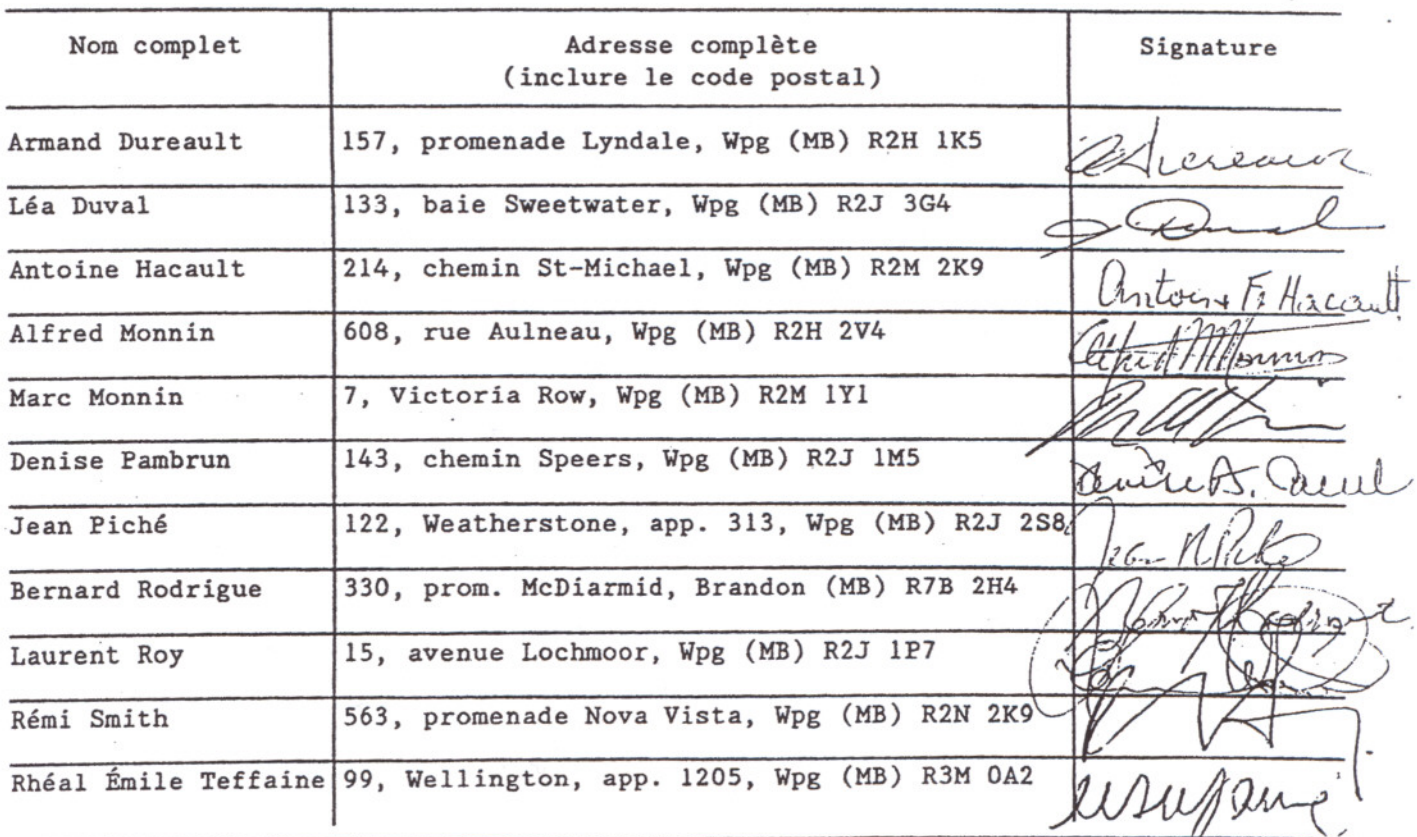 Nom complet
Adresse complète
(inclure le code postal)
Signature
Armand Dureault 157, promenade Lyndale, Wpg (MB) R2H 1K5
Léa Duval 133, baie Sweetwater, Wpg (MB) R2J 3G4
Antoine Hacault 214, chemin St-Michael, Wpg (MB) R2M 2K9 Antoine F. Hacault
Alfred Monnin 608, rue Aulneau, Wpg (MB) R2H 2V4 Alfred Monnin
Marc Monnin 7, Victoria Row, Wpg (MB) R2M 1Y1
Denise Pambrun 143, chemin Speers, Wpg (MB) R2J 1M5
Jean Piché 122, Weatherstone, app. 313, Wpg (MB) R2J 2S8
Bernard Rodrigue 330, prom. McDiarmid, Brandon (MB) R7B 2H4
Laurent Roy 15, avenue Lochmoor, Wpg (MB) R2J 1P7
Rémi Smith 563, promenade Nova Vista, Wpg (MB) R2N 2K9
Rhéal Émile Teffaine 99, Wellington, app. 1205, Wpg (MB) R3M 0A2